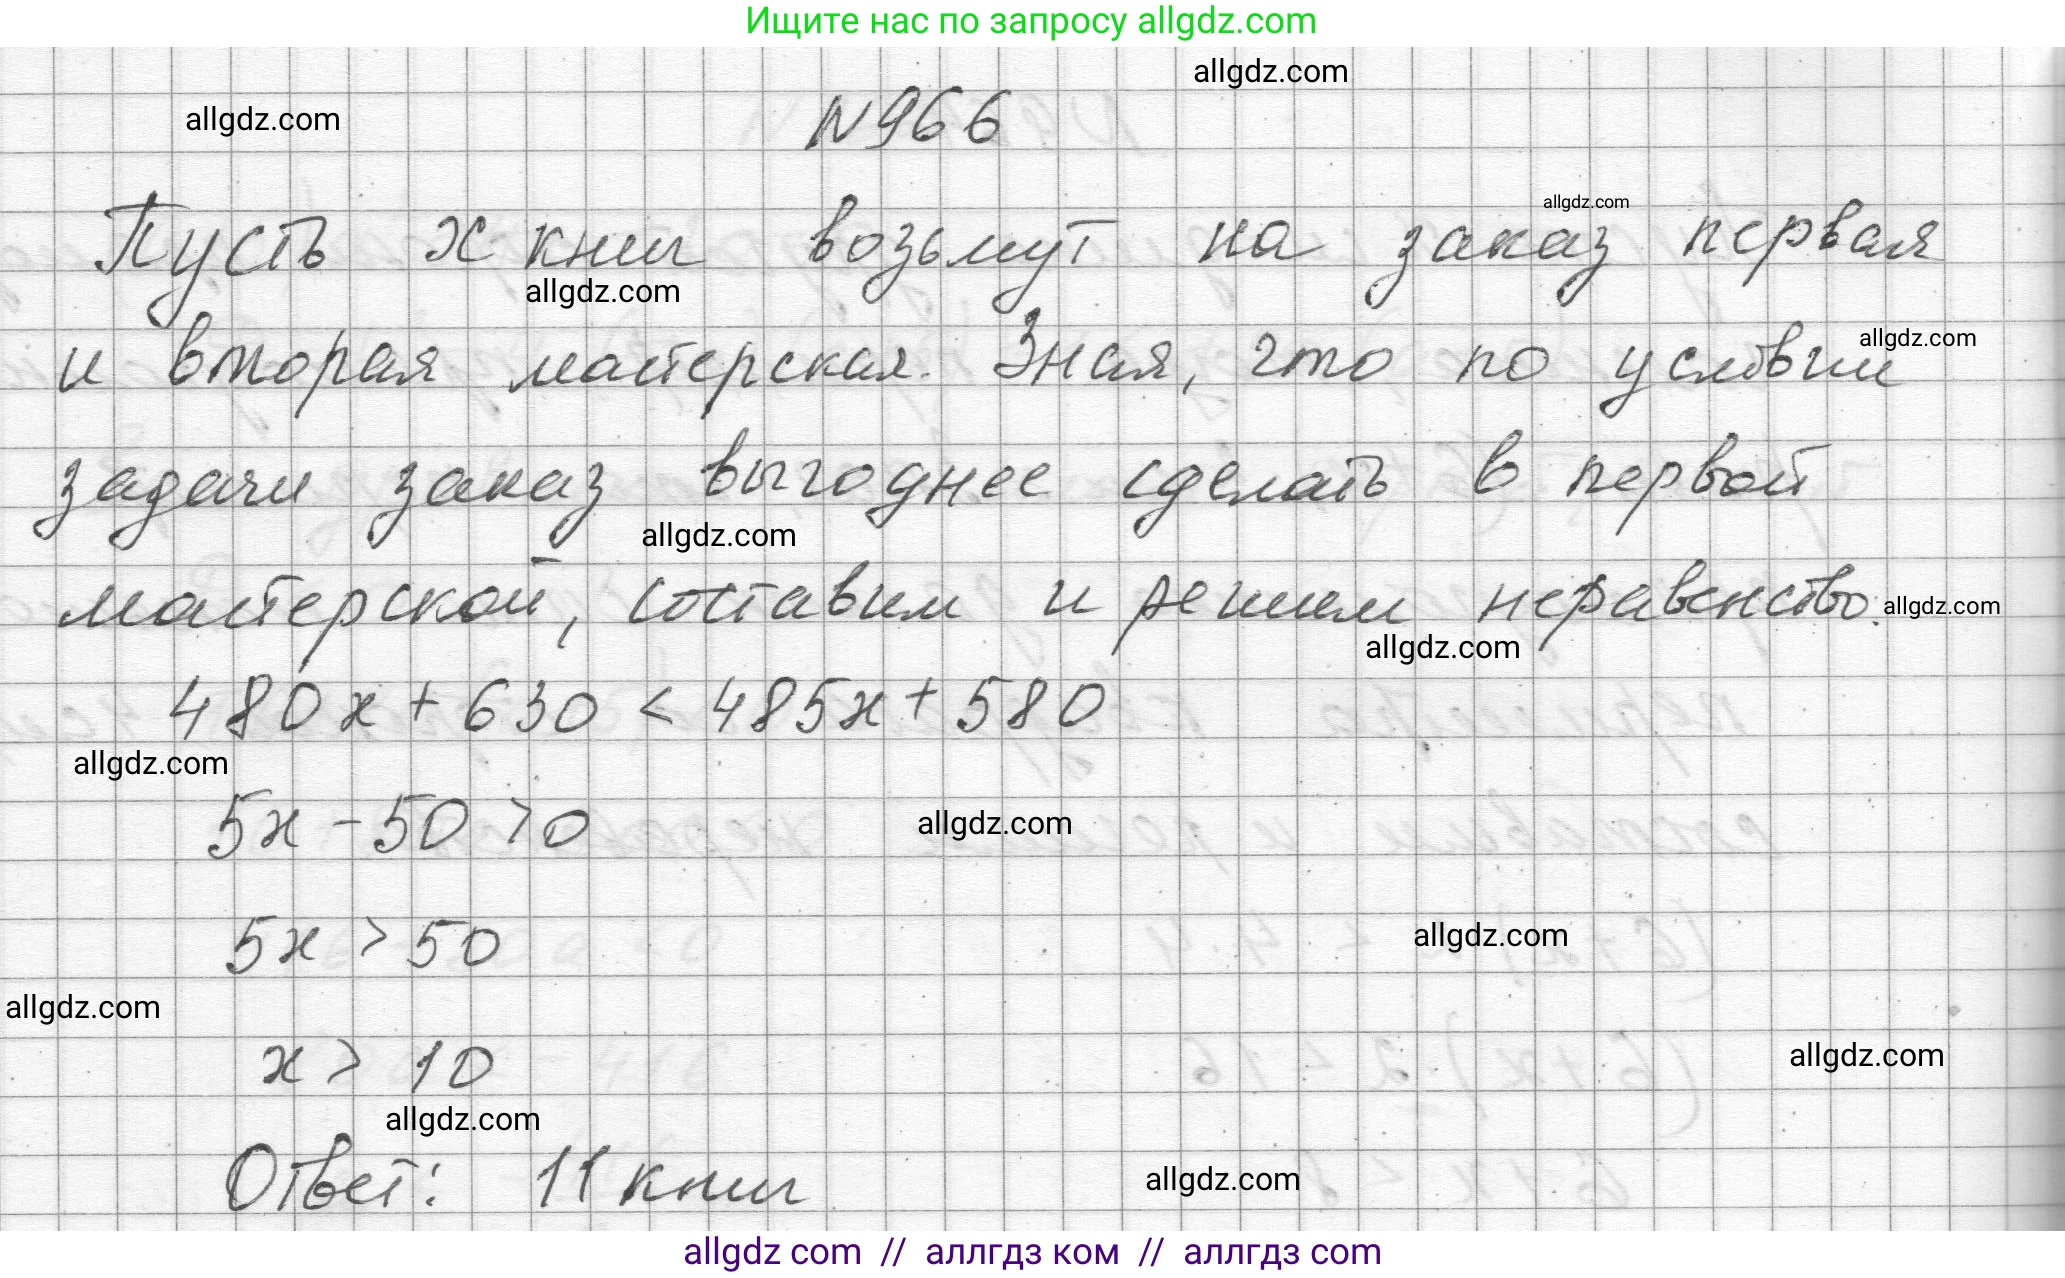 Ищите нас по запросу allgdz.com
allgdz.com
allgdz.com
N966
allgdz.com
Пусть x книг возьмут на заказ первая
allgdz.com
и вторая мастерская. Зная, что по условии
allgdz.com
задачи заказ выгоднее сделать в первой
allgdz.com
мастерской, составим и решим неравенство:
allgdz.com
allgdz.com
480x + 630 < 485x + 580
allgdz.com
5x - 50 > 0
allgdz.com
5x > 50
allgdz.com
allgdz.com
x > 10
allgdz.com
allgdz.com
Ответ: 11 книг
allgdz.com
allgdz com // аллгдз ком // аллгдз com